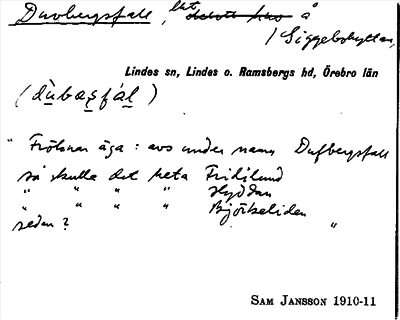 Duvbergsfall, lht å
/ Siggebohyttan,
Lindes sn, Lindes o. Ramsbergs hd, Örebro län
(dubasfal)
" Fröknar äga: avs under namn Dufbergsfall
så skulle det heta Fridslund
" " " " Hyddan
" " " " Björkeliden
sedan? "
SAM JANSSON 1910-11